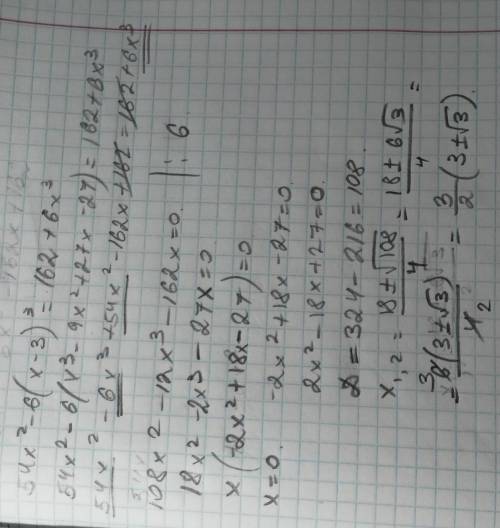 54x² - 6(x-3)³ = 162 + 6x³
54x² - 6(x³ - 9x² + 27x - 27) = 162 + 6x³
54x² - 6x³ + 54x² - 162x + 162 = 162 + 6x³
108x² - 12x³ - 162x = 0 | : 6
18x² - 2x³ - 27x = 0
x(-2x² + 18x - 27) = 0
x = 0. -2x² + 18x - 27 = 0
2x² - 18x + 27 = 0.
D = 324 - 216 = 108.
x₁,₂ = (18 ± √108)/4 = (18 ± 6√3)/4 =
= 6(3 ± √3)/4 = 3/2 (3 ± √3).